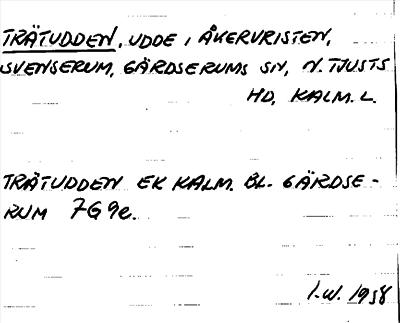 TRÄTUDDEN, UDDE I ÅKERVRISTEN,
SVENSERUM, GÄRDSERUMS SN, N. TJUSTS
HD, KALM. L.
TRÄTUDDEN EK KALM. BL. GÄRDSE-
RUM 7G9e.
I.W. 1958